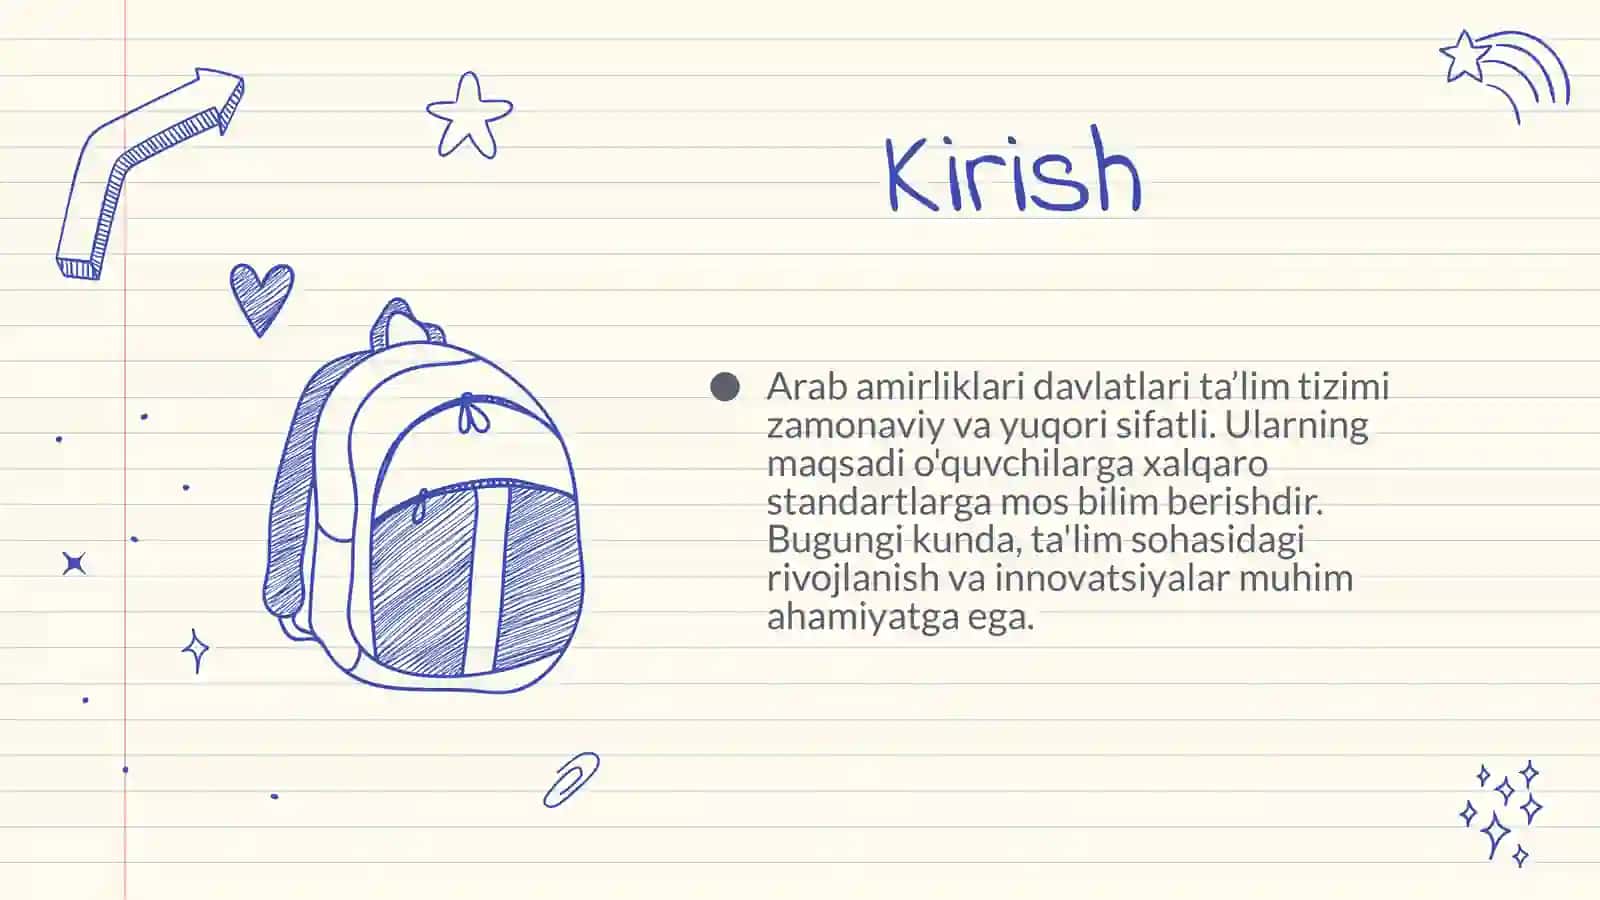 Kirish
Arab amirliklari davlatlari ta’lim tizimi
zamonaviy va yuqori sifatli. Ularning
maqsadi o'quvchilarga xalqaro
standartlarga mos bilim berishdir.
Bugungi kunda, ta'lim sohasidagi
rivojlanish va innovatsiyalar muhim
ahamiyatga ega.